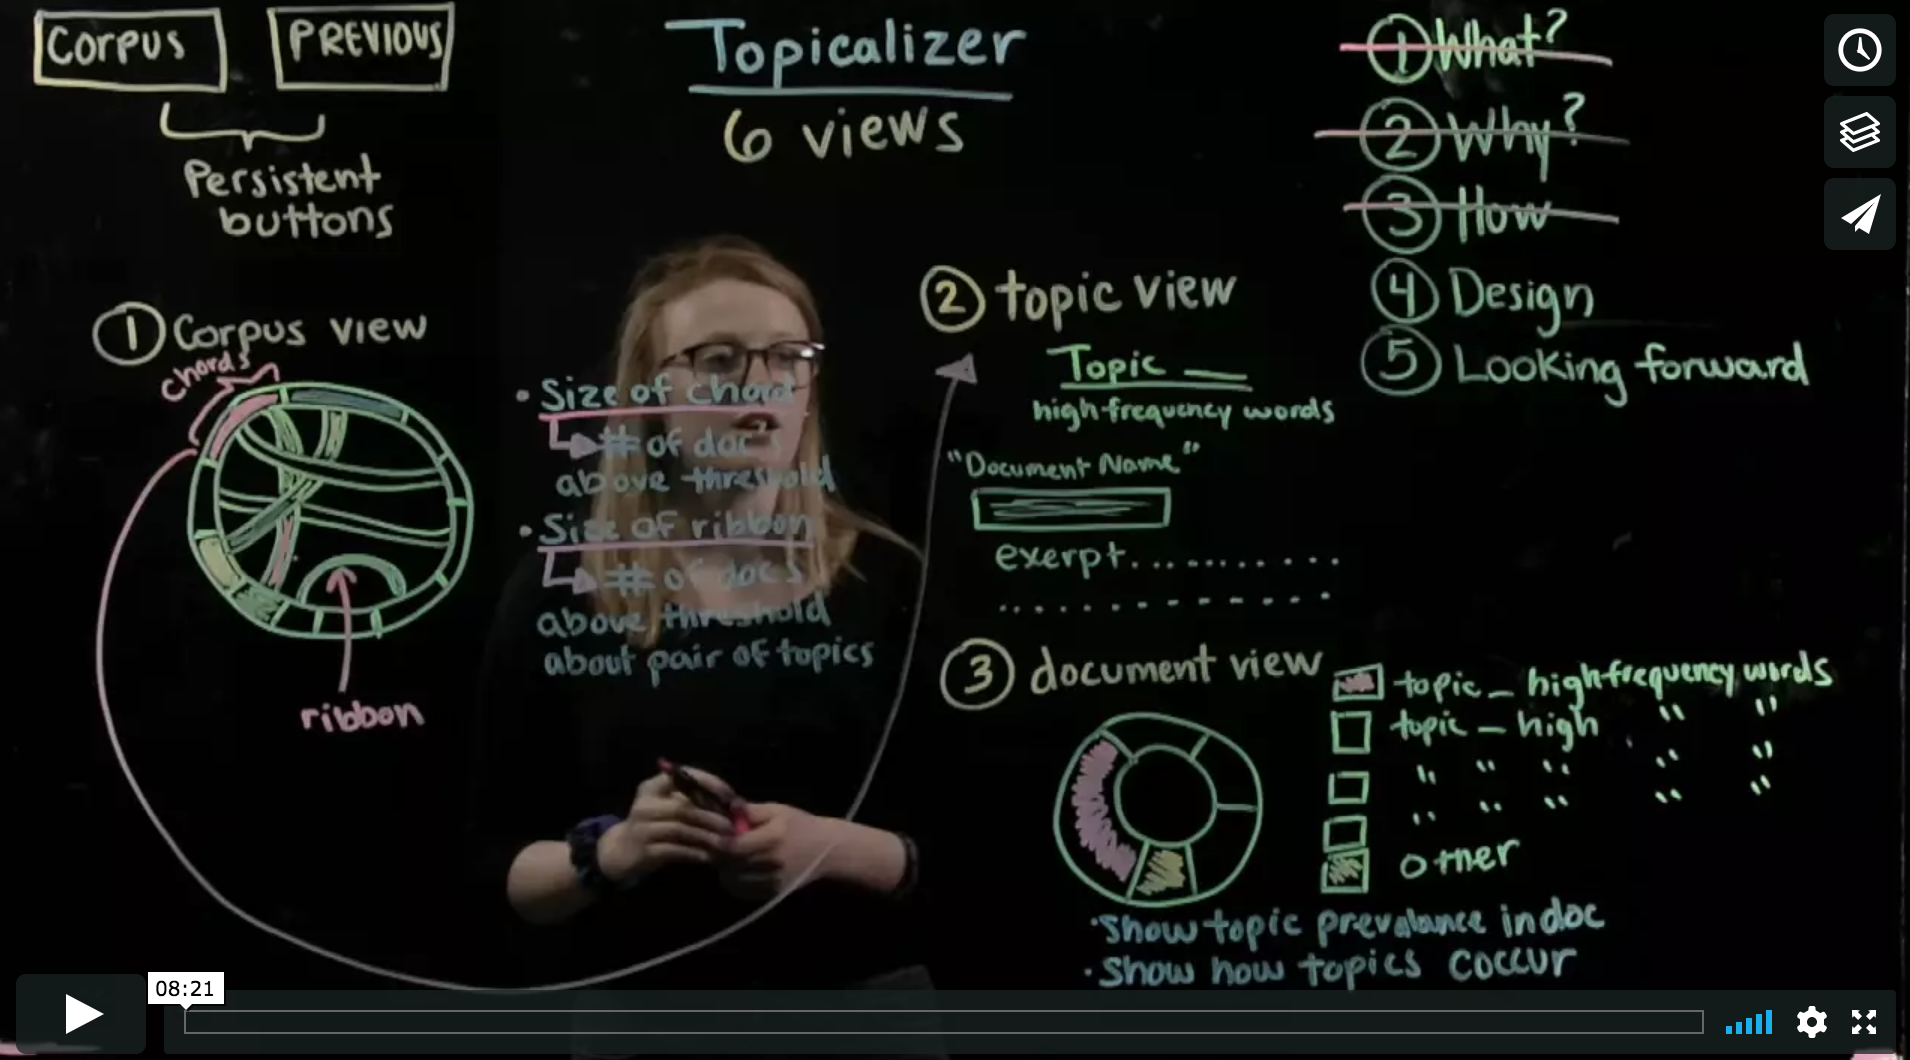 Corpus
PREVIOUS
Persistent
buttons
Topicalizer
6 views
1 What?
2 Why?
3 How
4 Design
5 Looking forward
1 Corpus view
chords
ribbon
• Size of chord
# of doc's
above threshold
• Size of ribbon
# of docs
above threshold
about pair of topics
2 topic view
Topic __
high-frequency words
"Document Name"
exerpt............
..............
3 document view
topic _ high-frequency words
topic – high " "
" " " " "
" " " " "
other
• Show topic prevalance in doc
• Show how topics coccur
08:21